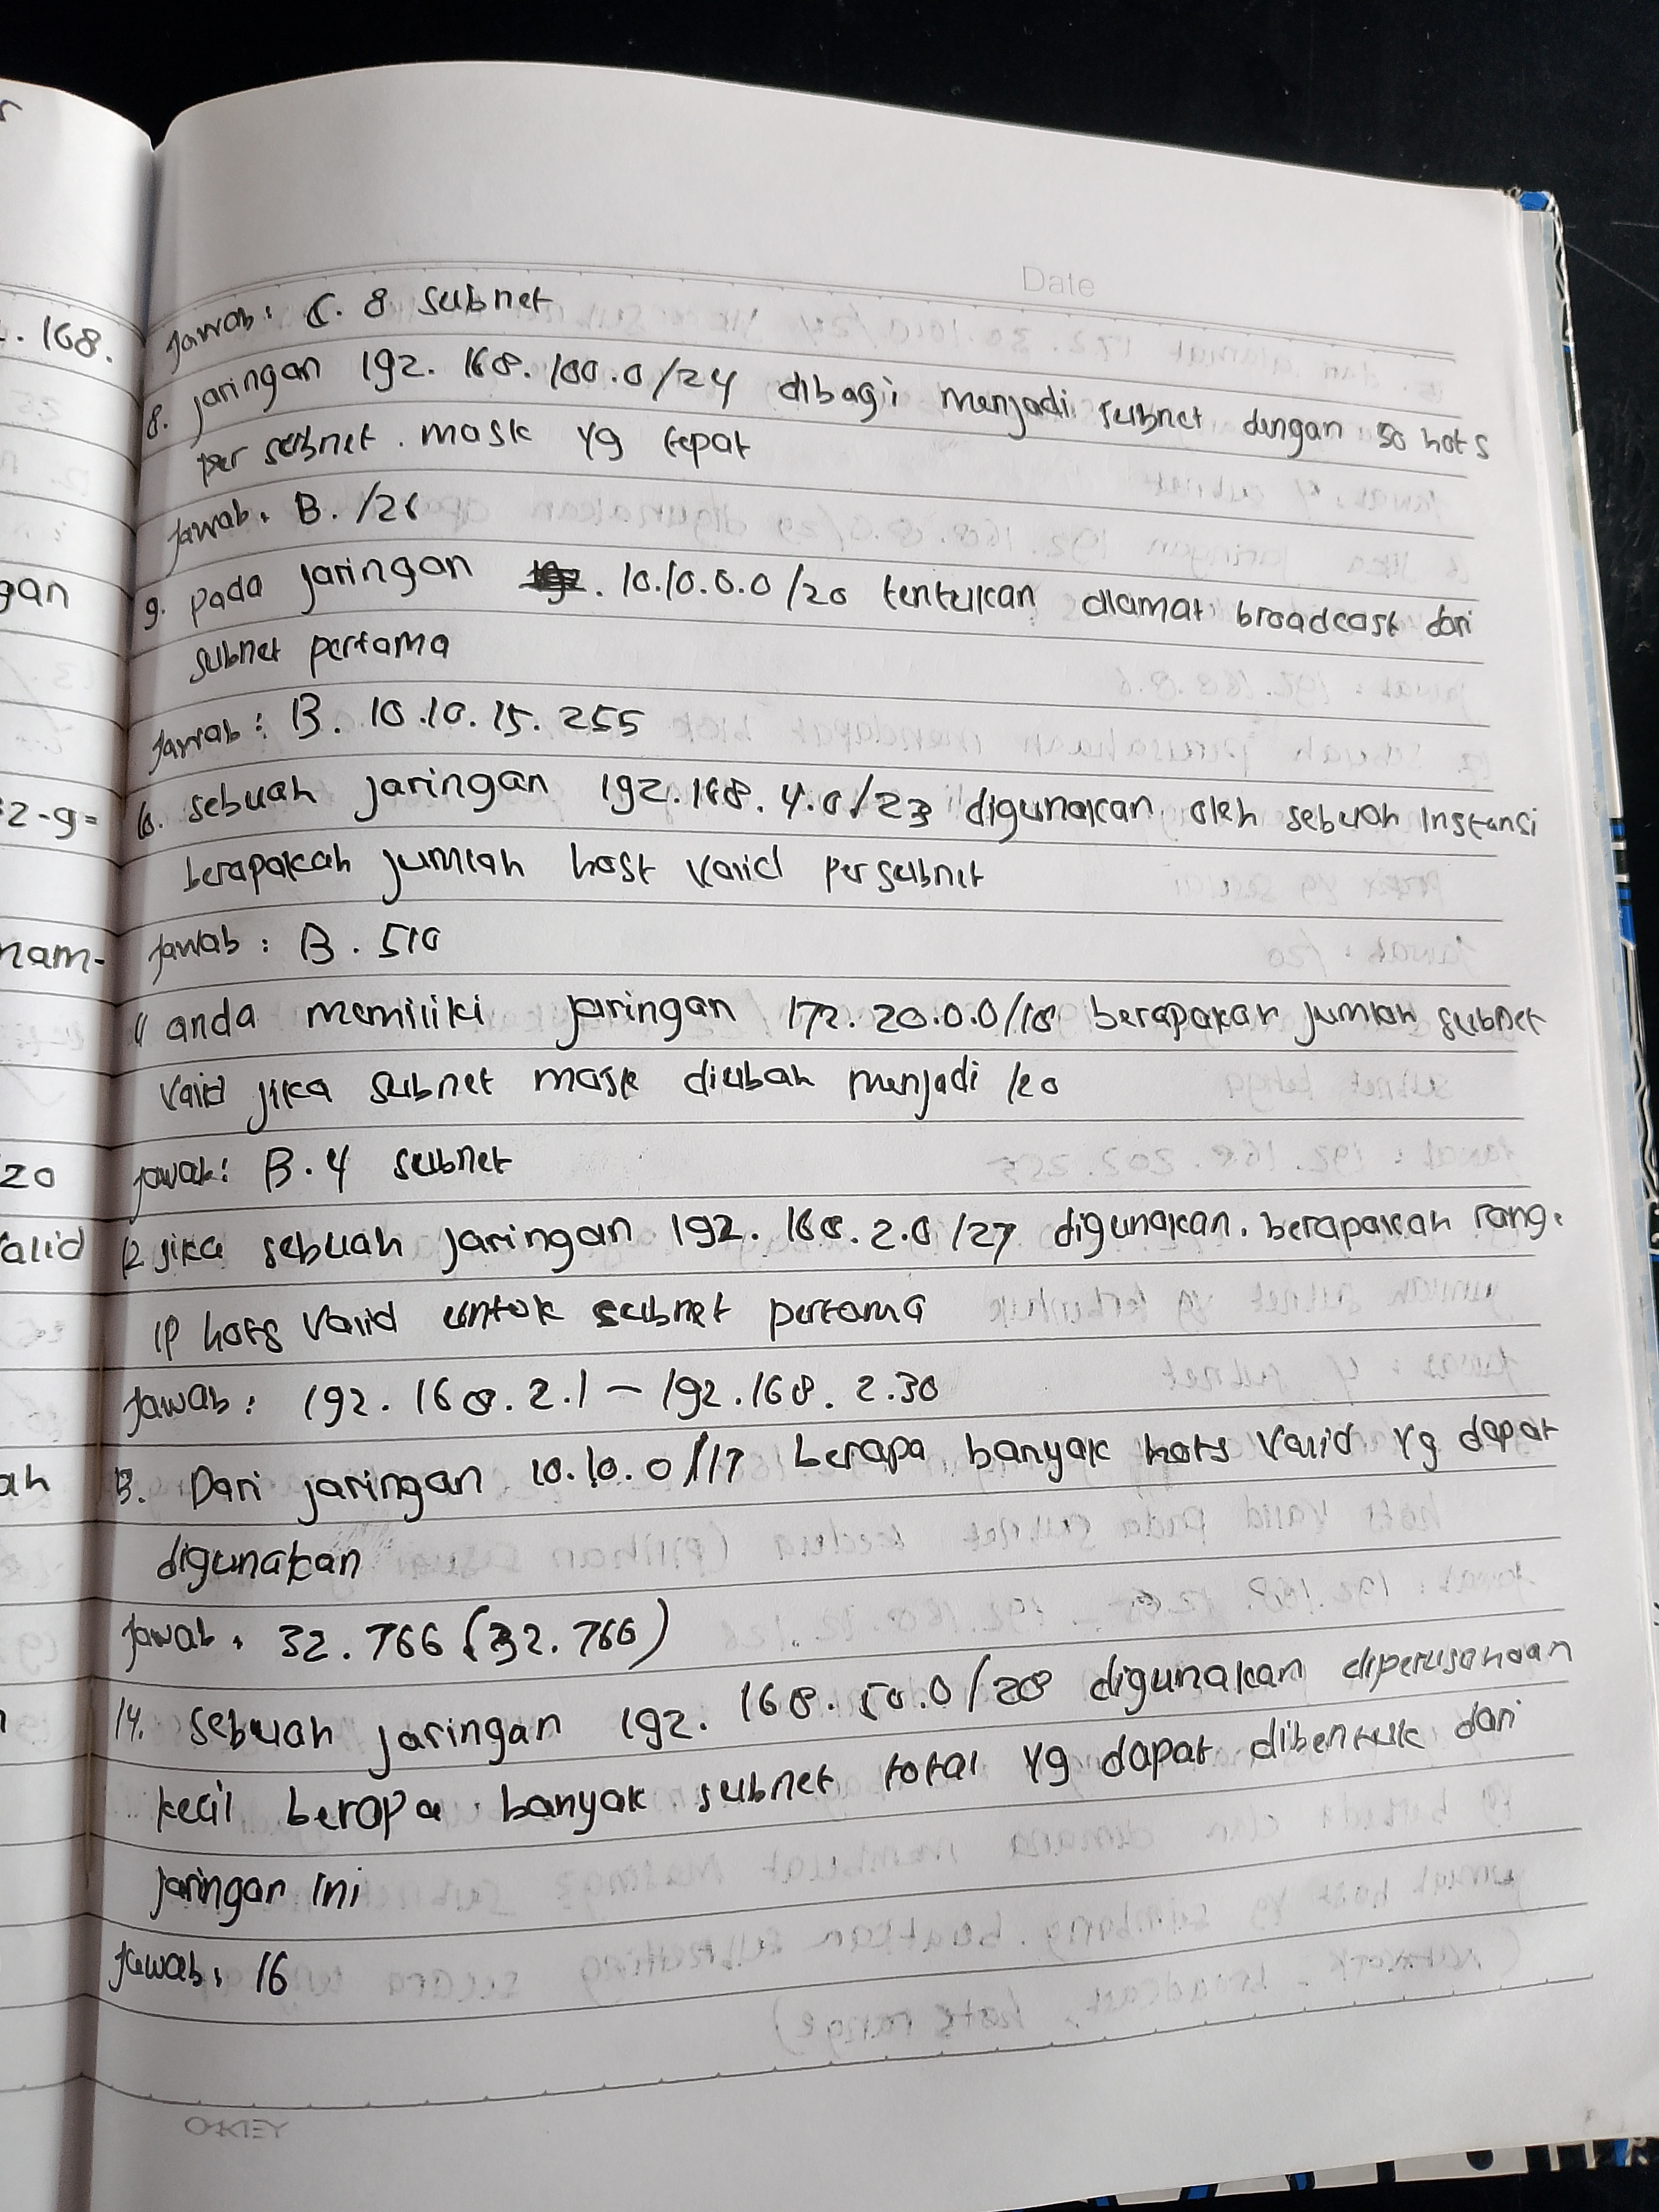 Date
Jawab : C. 8 subnet
8. jaringan 192. 168. 100.0/24 dibagi menjadi subnet dengan 50 hots
per subnet. mask yg tepat
Jawab : B. /26
9. pada jaringan . 10.10.0.0 /20 tentukan alamat broadcast dari
subnet pertama
Jawab : B. 10.10.15.255
10. sebuah jaringan 192.168.4.0/23 digunakan oleh sebuah Instansi
berapakah jumlah host valid per subnet
Jawab : B. 510
11 anda memiliki jaringan 172.20.0.0/18 berapakah jumlah subnet
valid jika subnet mask diubah menjadi /20
Jawab : B. 4 subnet
12 jika sebuah jaringan 192. 168. 2.0 /27 digunakan. berapakah range
IP hots valid untuk subnet pertama
Jawab : 192. 168. 2.1 – 192.168. 2.30
13. Dari jaringan 10.10.0/17 berapa banyak hots valid yg dapat
digunakan
Jawab : 32.766 (32.766)
14. sebuah jaringan 192. 168. 50.0/28 digunakan diperusahaan
kecil berapa banyak subnet total yg dapat dibentuk dari
jaringan ini
Jawab : 16
OKEY
. 168.
gan
2-9=
nam-
20
valid
ah